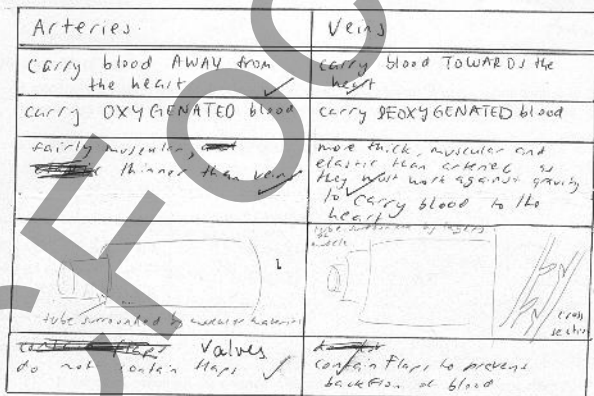 Arteries.
Veins
carry blood AWAY from
the heart
carry blood TOWARDS the
heart
carry OXYGENATED blood
carry DEOXYGENATED blood
fairly muscular,
thinner than veins
more thick, muscular and
elastic than arteries as
they must work against gravity
to carry blood to the
heart
tube surrounded by layers
muscle
tube surrounded by muscular material
cross
section
valves
do not contain flaps
contain flaps to prevent
backflow of blood